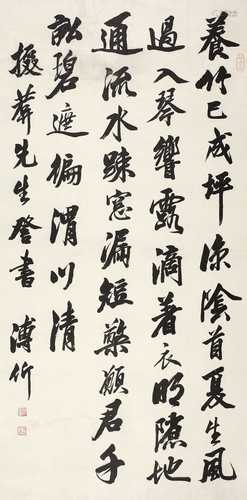 養竹已成坪涼陰首夏生風
過入琴響露滴着衣明隙地
通流水疎窓漏短檠願君千
畝碧遮徧渭川清
擬葊先生啓書 溥伒